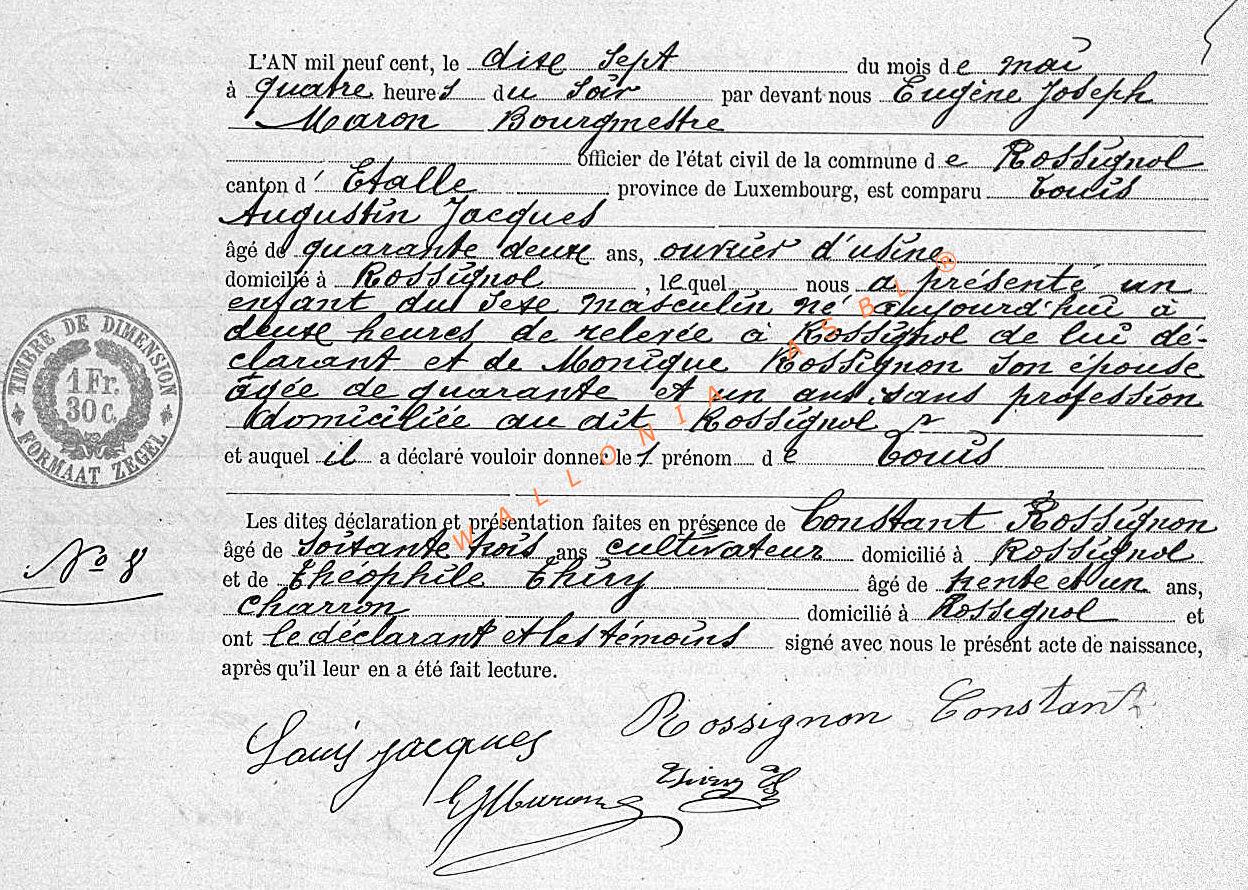 L'AN mil neuf cent, le dixe sept du mois de mai
à quatre heures du soir par devant nous Eugène Joseph
Maron Bourgmestre
officier de l'état civil de la commune de Rossignol
canton d' Etalle province de Luxembourg, est comparu Louis
Augustin Jacques
âgé de quarante deux ans, ouvrier d'usine
domicilié à Rossignol, lequel nous a présenté un
enfant du sexe masculin né aujourd'hui à
deux heures de relevée à Rossignol de lui dé-
clarant et de Monique Rossignon son épouse
âgée de quarante et un ans, sans profession
domiciliée au dit Rossignol
et auquel il a déclaré vouloir donner les prénom de Louis
Les dites déclaration et présentation faites en présence de Constant Rossignon
âgé de soixante trois ans cultivateur domicilié à Rossignol
et de Théophile Thiry âgé de trente et un ans,
charron domicilié à Rossignol et
ont le déclarant et les témoins signé avec nous le présent acte de naissance,
après qu'il leur en a été fait lecture.
TIMBRE DE DIMENSION
1 Fr.
30 c.
FORMAAT ZEGEL
No 8
WALLONIA ASBL ®
Rossignon Constant
Louis Jacques
Thiry
EJMaron